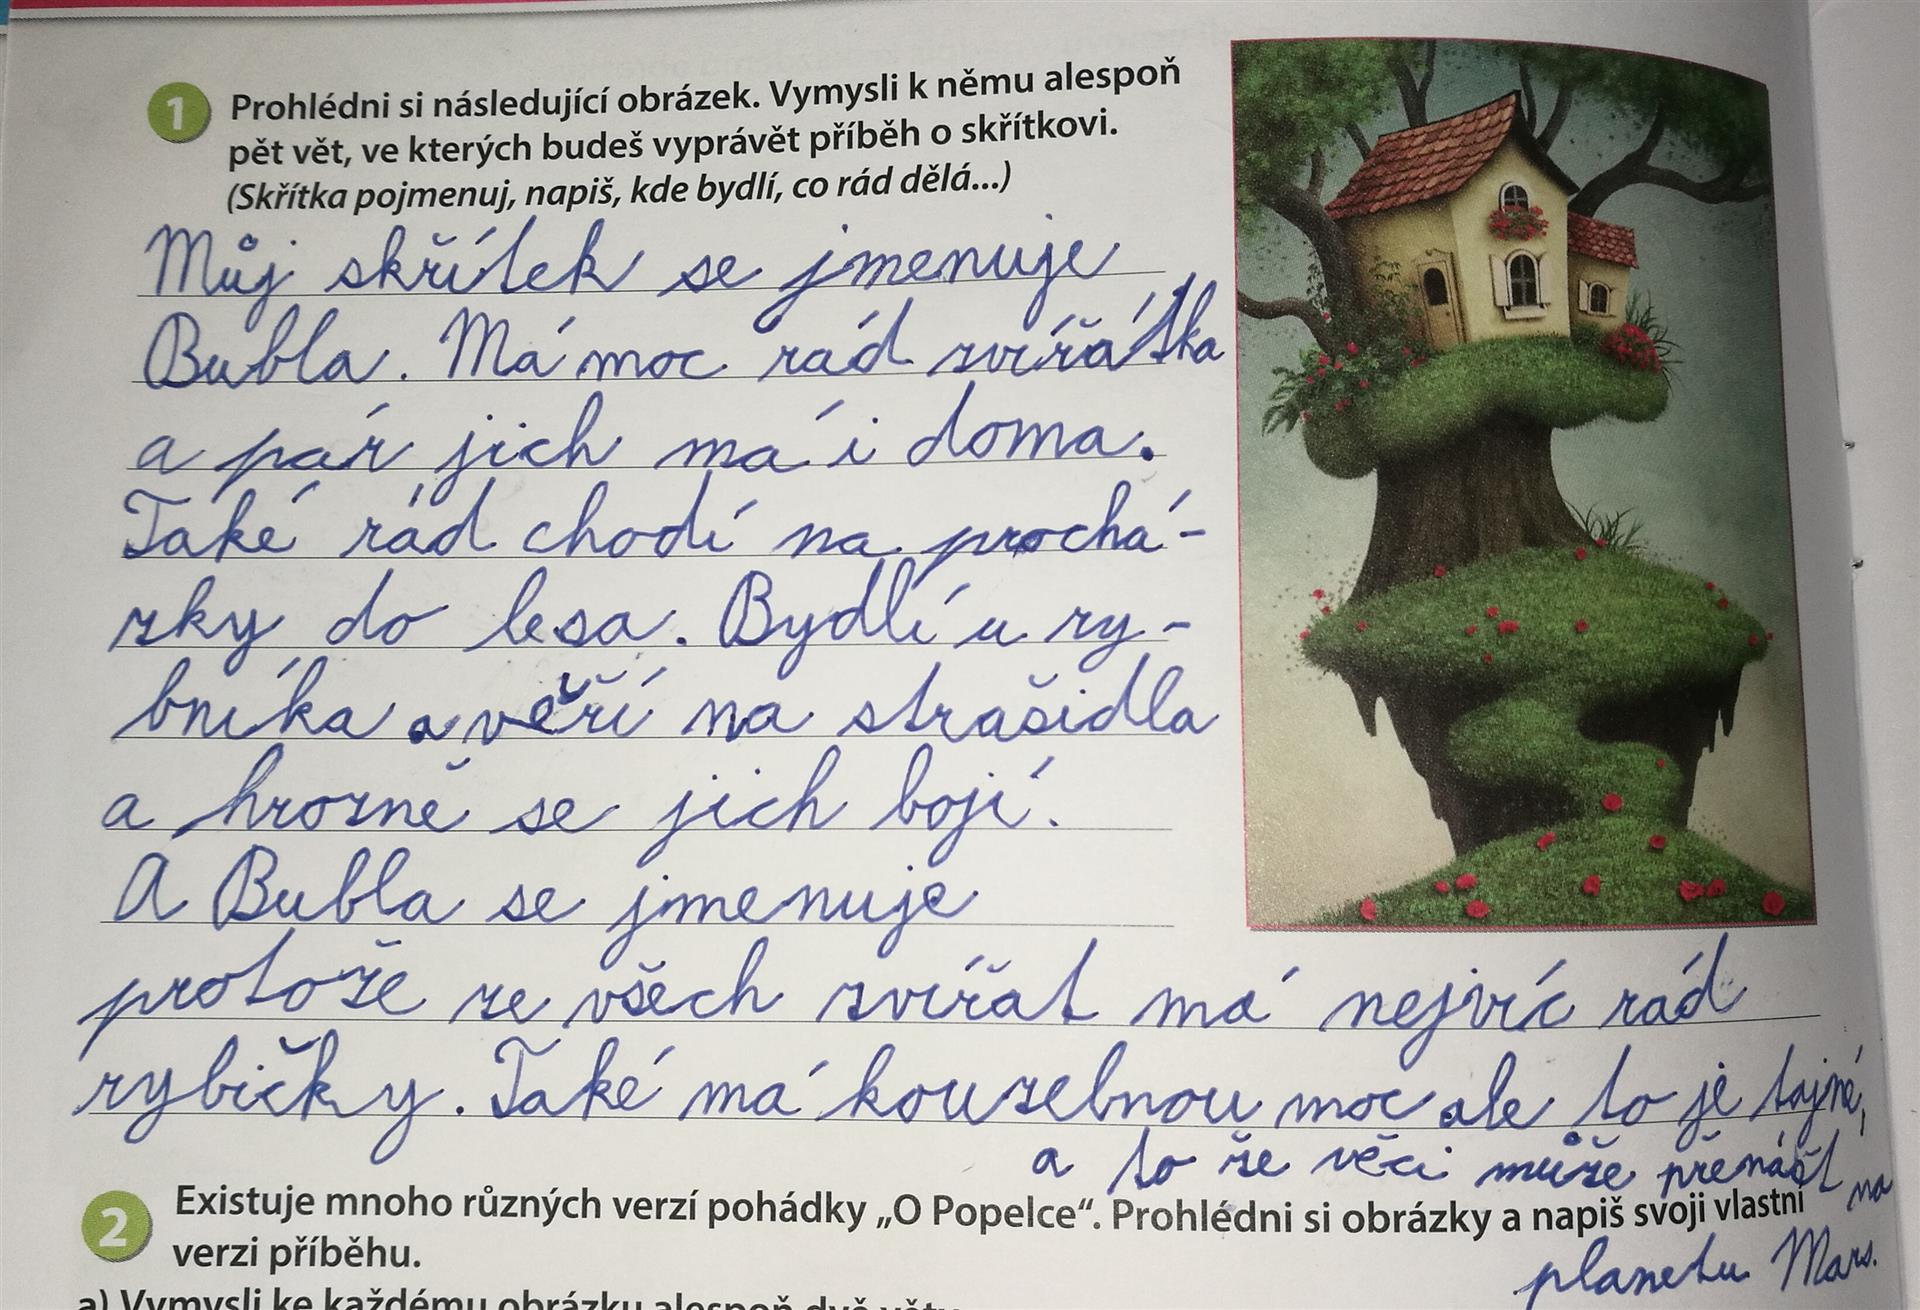 1 Prohlédni si následující obrázek. Vymysli k němu alespoň
pět vět, ve kterých budeš vyprávět příběh o skřítkovi.
(Skřítka pojmenuj, napiš, kde bydlí, co rád dělá...)
Můj skřítek se jmenuje
Bubla. Má moc rád zvířátka
a pár jich má i doma.
Také rád chodí na prochá-
zky do lesa. Bydlí u ry-
bníka a věří na strašidla
a hrozně se jich bojí.
A Bubla se jmenuje
protože ze všech zvířat má nejvíc rád
rybičky. Také má kouzelnou moc ale to je tajné,
a to že věci může přenášt na
planetu Mars.
2 Existuje mnoho různých verzí pohádky „O Popelce“. Prohlédni si obrázky a napiš svoji vlastní
verzi příběhu.
a) Vymysli ke každému obrázku alespoň dvě věty